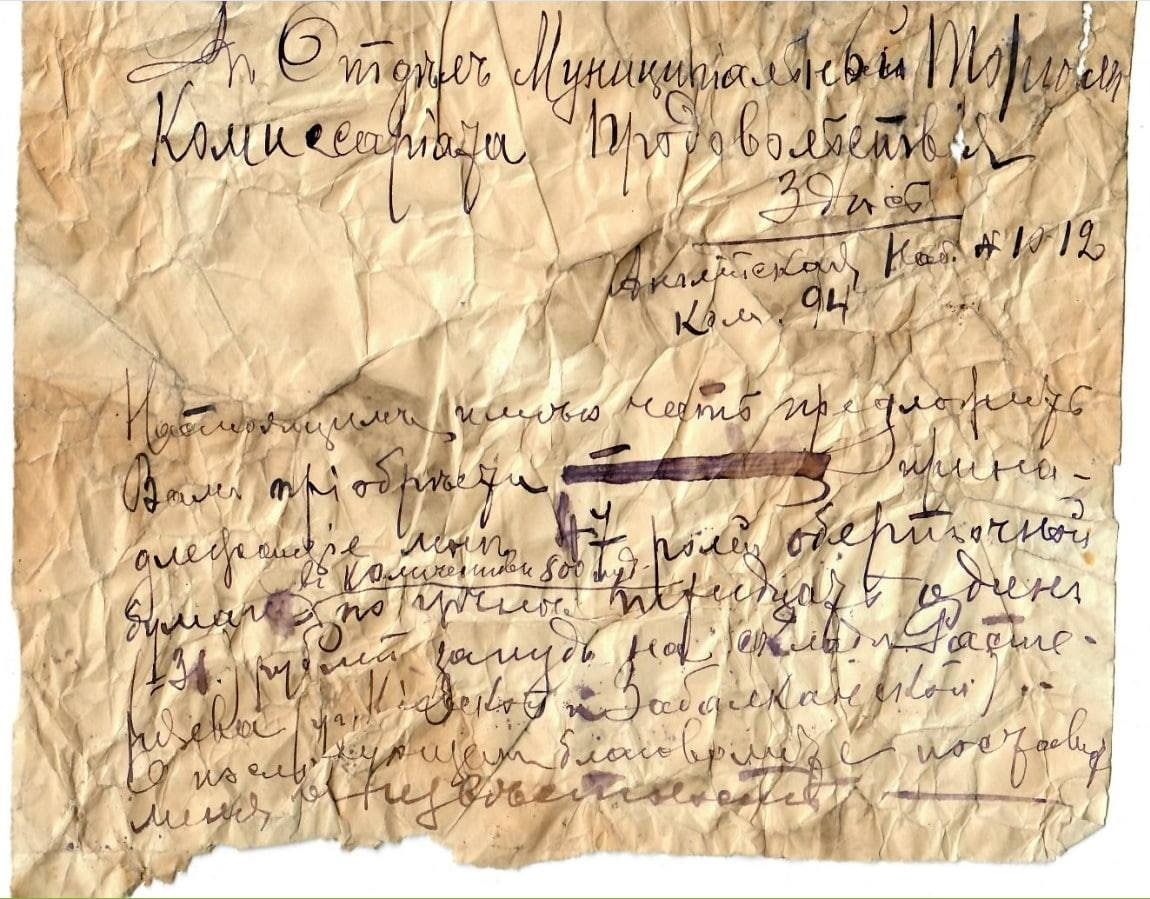 Въ Отдѣлъ Муниципальный Торговли
Комиссаріата Продовольствія
Здѣсь
Англійская Наб. № 10-12
Ком. 94
Настоящимъ имѣю честь предложить
Вамъ пріобрѣсти прина-
длежащіе мнѣ 47 ролей оберточной
въ количествѣ 800 пуд.
бумаги по цѣнѣ тридцать одинъ
(31) рублей за пудъ на складѣ Расте-
ряева (уг. Кіевской и Забалканской)
О послѣдующемъ благоволите поставить
меня въ извѣстность